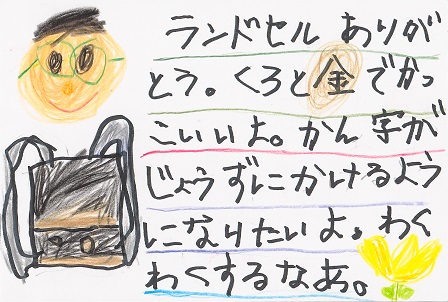 ランドセル ありが
とう。くろと金でかっ
こいいよ。かん字が
じょうずにかけるよう
になりたいよ。わく
わくするなあ。